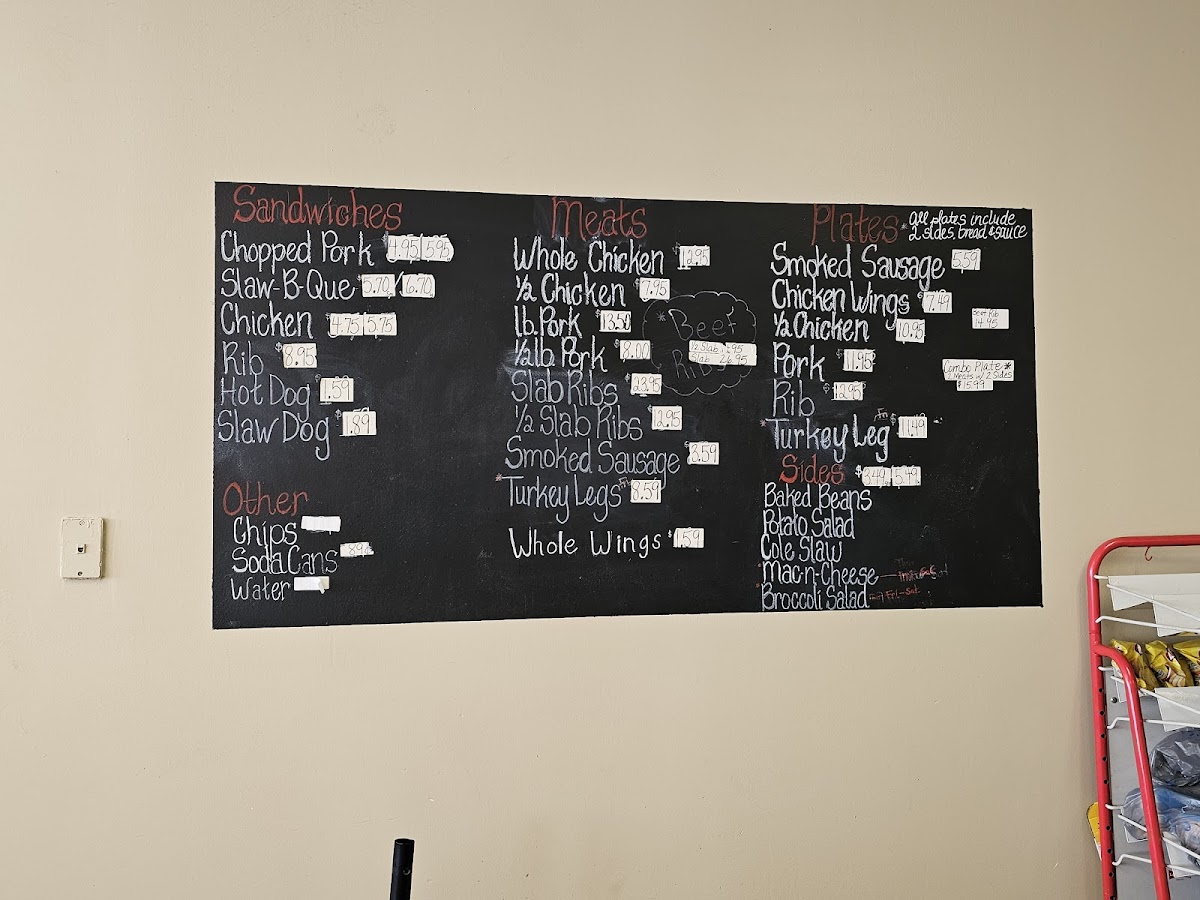 Sandwiches
Chopped Pork 4.95 5.95
Slaw-B-Que $5.70/6.70
Chicken $4.75 5.75
Rib $8.95
Hot Dog $1.59
Slaw Dog $1.89
Other
Chips
Soda Cans .89¢
Water
Meats
Whole Chicken $12.95
½ Chicken $7.95
lb. Pork $13.50
½lb. Pork $8.00
Slab Ribs $23.95
½ Slab Ribs $12.95
Smoked Sausage $3.59
*Turkey Legs Fri $8.59
Whole Wings $1.59
*Beef
Ribs
½ Slab
Slab 26.95
Plates
*All plates include
2 sides, bread & sauce
Smoked Sausage 5.59
Chicken Wings $7.49
½ Chicken 10.95
Pork $11.95
Rib $12.95
*Turkey Leg Fri $11.49
Beef Rib
14.95
Combo Plate*
2 Meats w/ 2 Sides
$15.99
Sides $3.49/5.49
Baked Beans
Potato Salad
Cole Slaw
Mac-n-Cheese
Broccoli Salad Fri-Sat